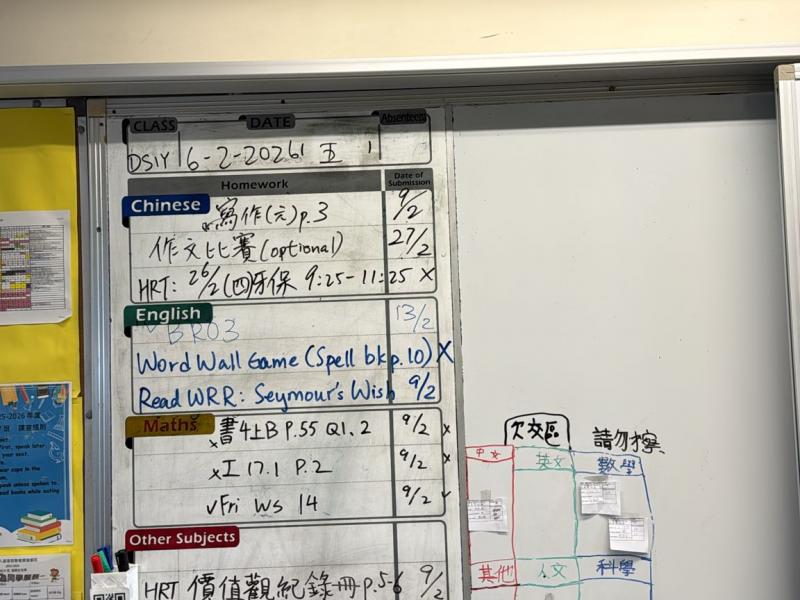 CLASS DATE Absentees
6-2-2026 五 1
Homework Date of Submission
Chinese
寫作(元)p.3 9/2
作文比賽(optional) 27/2
HRT: 26/2(四)牙保 9:25-11:25 X
English
BR03 13/2
Word Wall Game (Spell bk p.10) X
Read WRR: Seymour's Wish 9/2
Maths
x書4上B P.55 Q1.2 9/2 x
x工17.1 P.2 9/2 x
vFri Ws 14 9/2 v
Other Subjects
HRT 價值觀紀錄冊p.5-6 9/2
欠交區 請勿擦
中文 英文 數學
其他 人文 科學